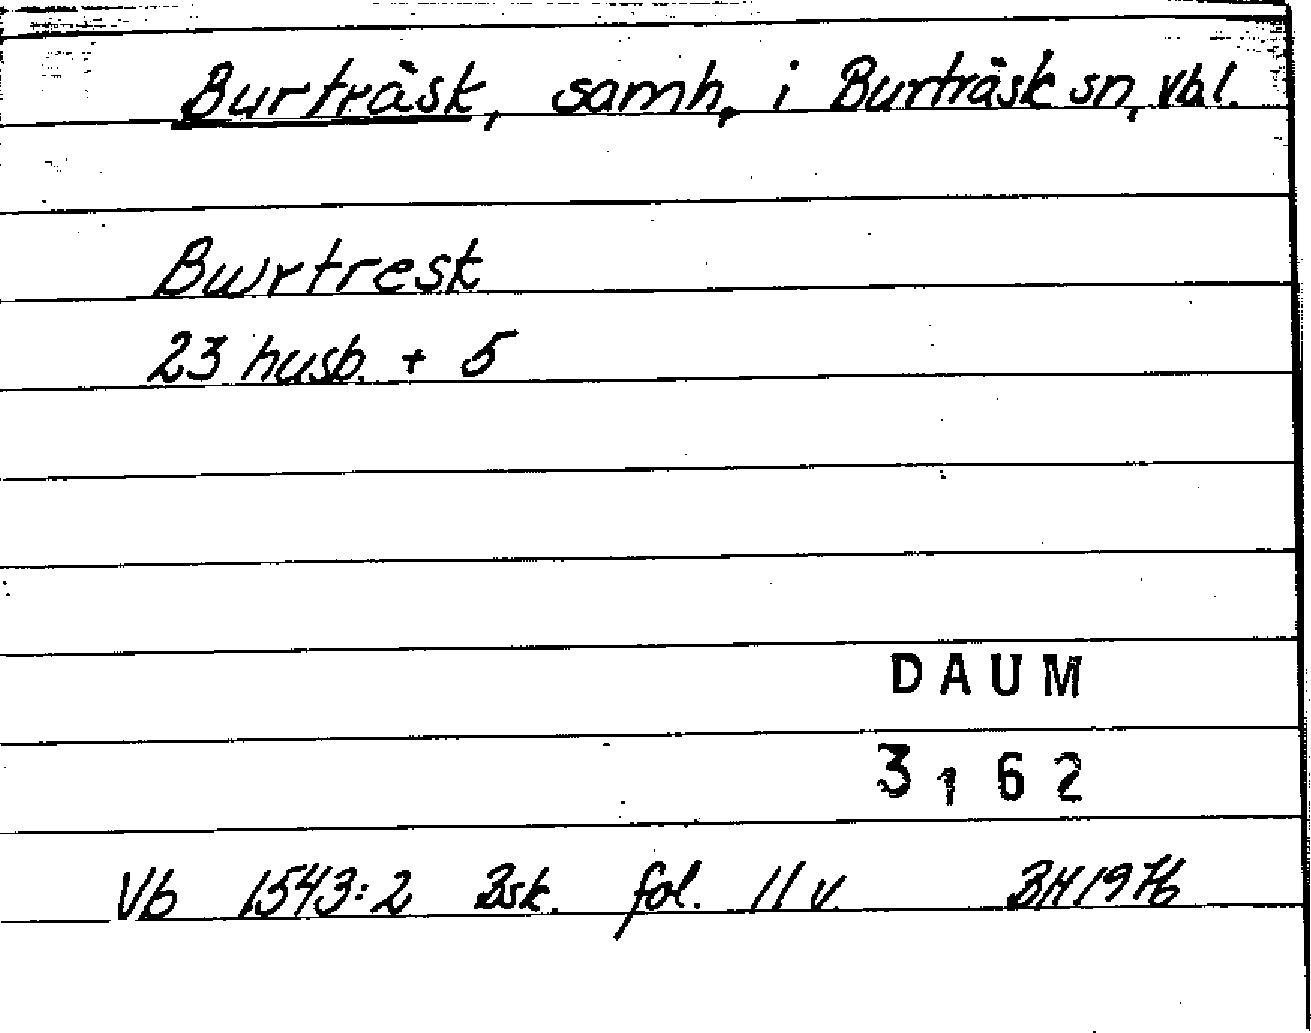 Burträsk, samh. i Burträsk sn, Vbl.
Bwrtresk
23 husb. + 5
DAUM
3162
Vb 1543:2 Bsk. fol. 11 v. BH 1976